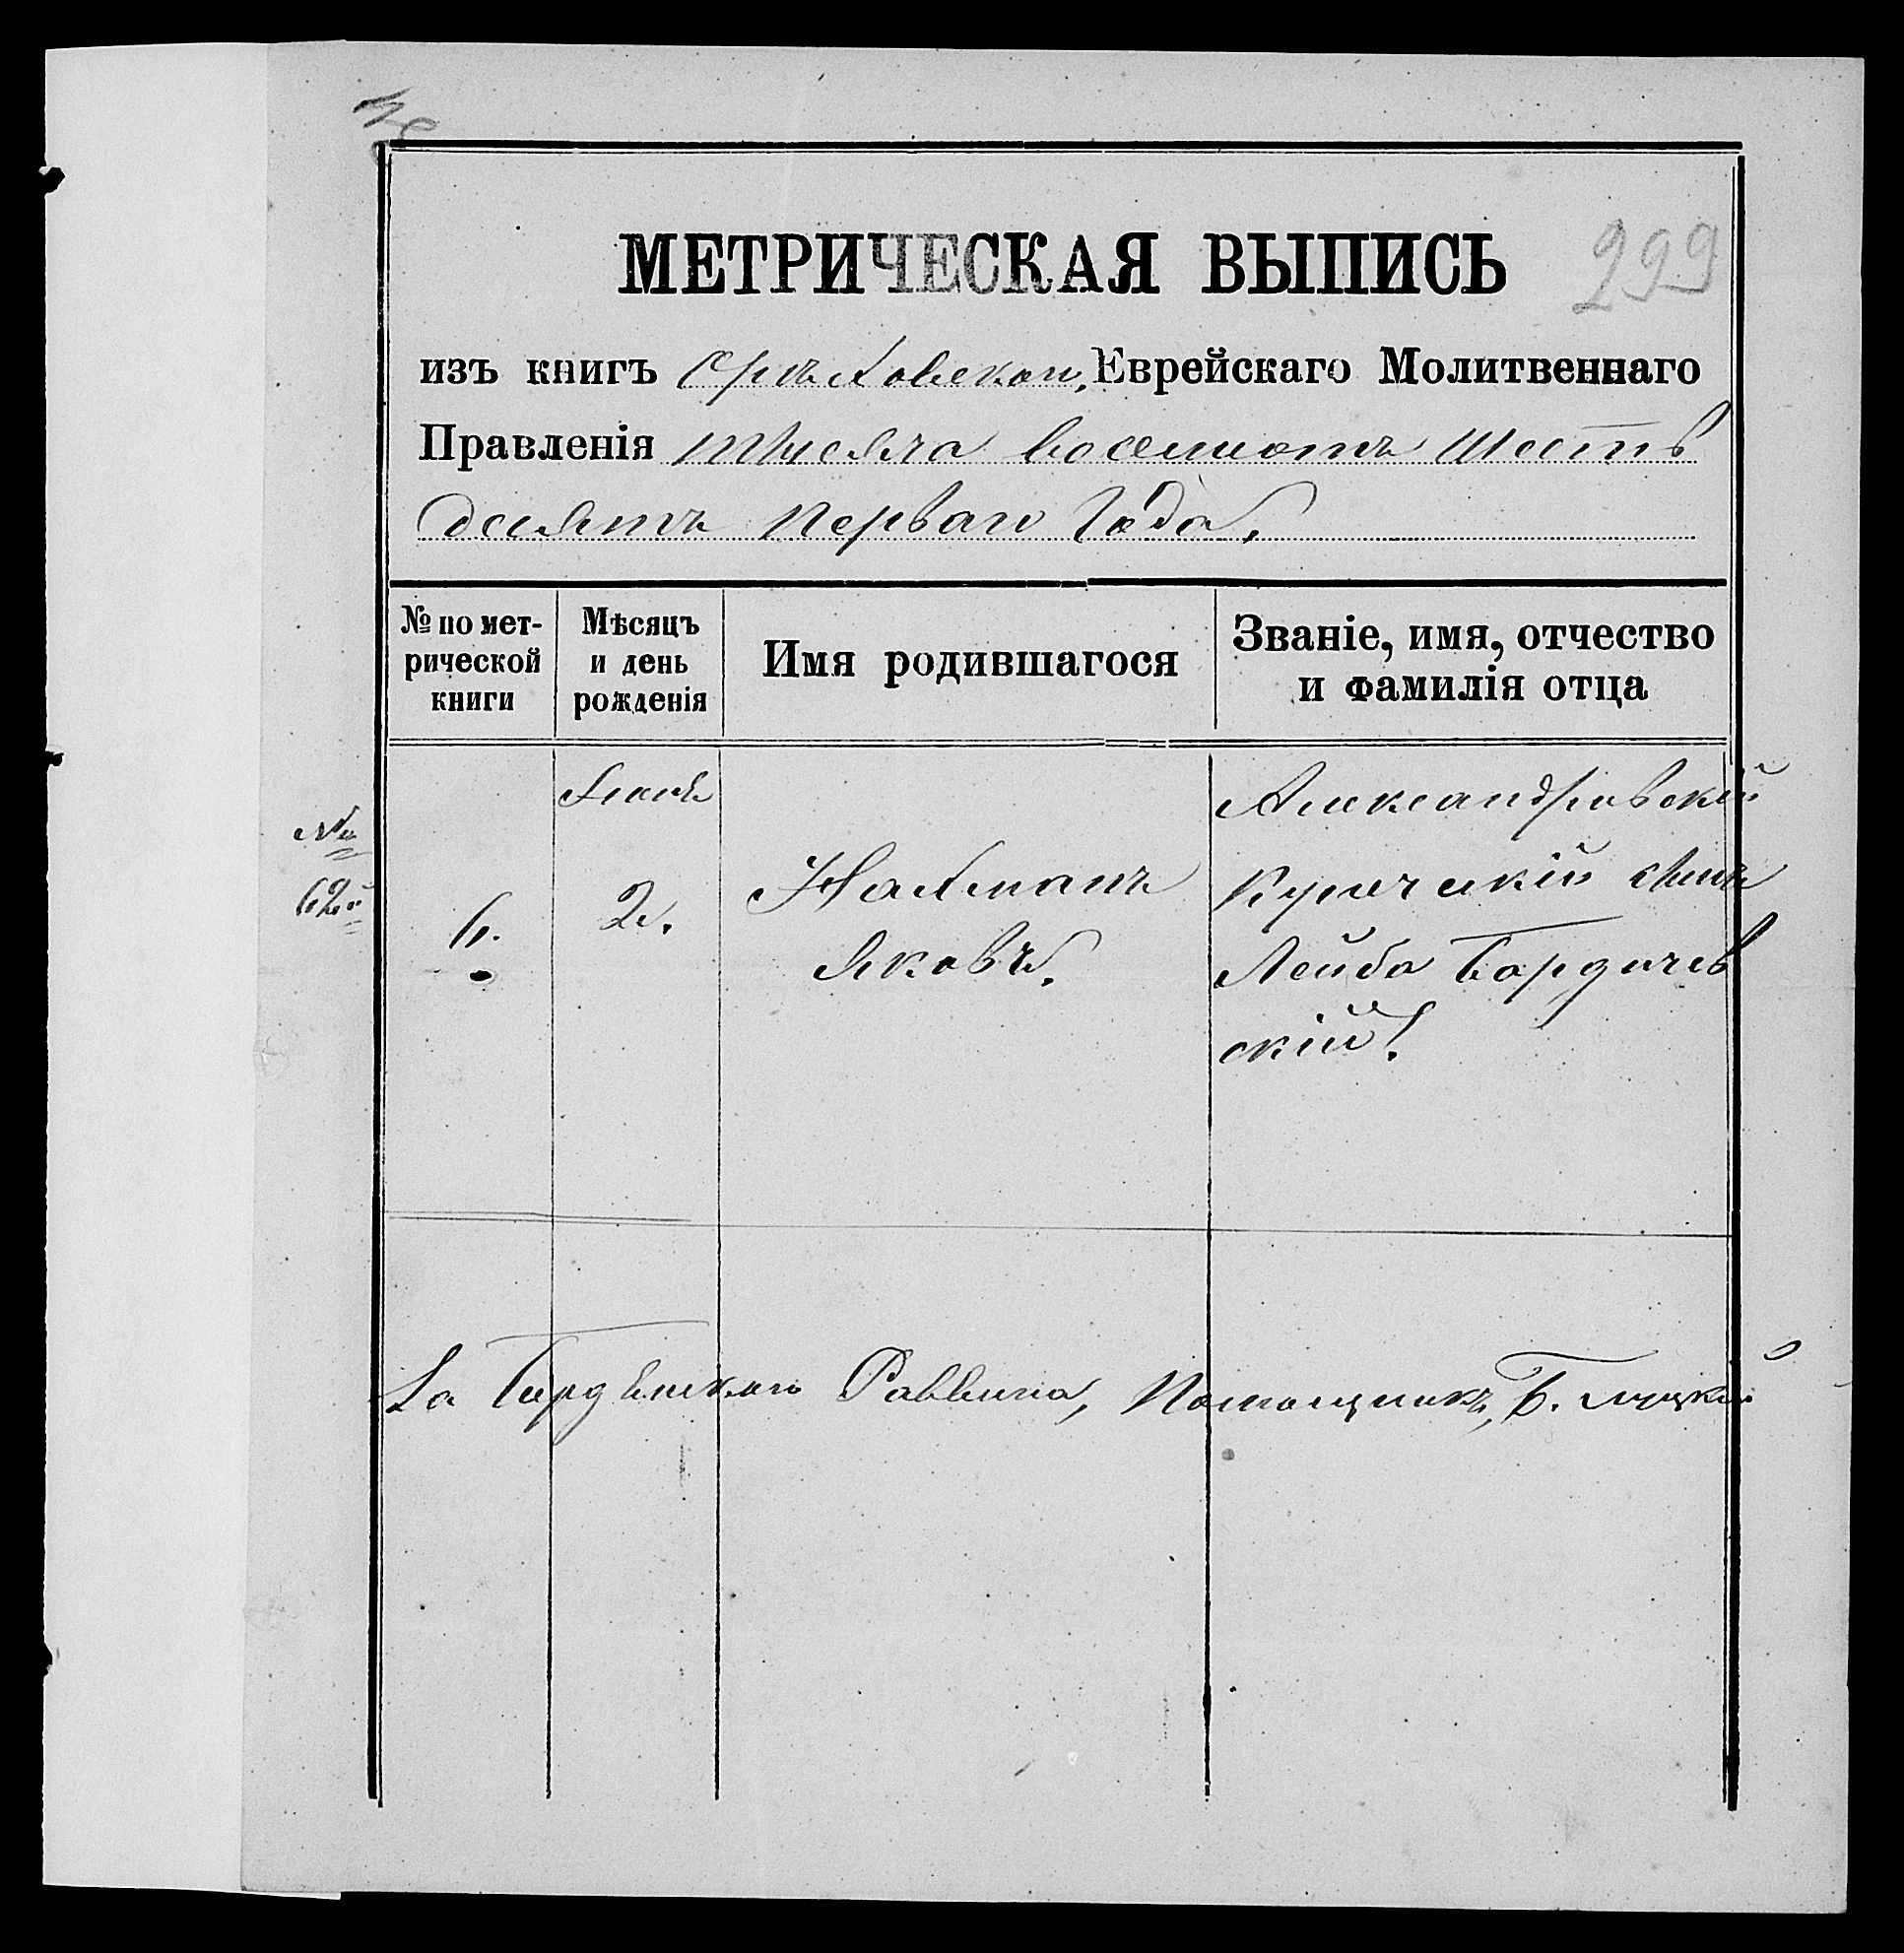 299
МЕТРИЧЕСКАЯ ВЫПИСЬ
изъ книгъ Орѣховской, Еврейскаго Молитвеннаго
Правленія тысяча восемьсотъ шесть
десятъ перваго Года.
№ по мет-
рической
книги
Мѣсяцъ
и день
рожденія
Имя родившагося
Званіе, имя, отчество
и фамилія отца
№
62й
6.
2.
Нахманъ
Яковъ.
Александровскій
Купеческій сынъ
Лейба Бардичев
скій.
За Бердянскаго Раввина, Помощникъ, Б. Луцкій